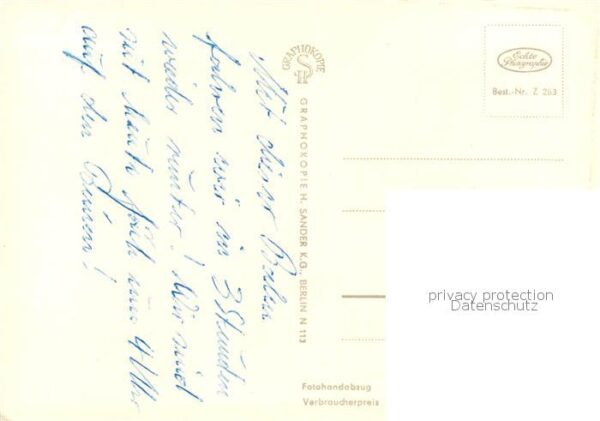 Mit dieser Bahn
fahren wir in 3 Stunden
wieder runter! Wir sind
seit heute früh um 4 Uhr
auf den Beinen!
GRAPHOKOPIE
GRAPHOKOPIE H. SANDER K.G., BERLIN N 113
Echte
Photographie
Best.-Nr. Z 263
Fotohandabzug
Verbraucherpreis
privacy protection
Datenschutz